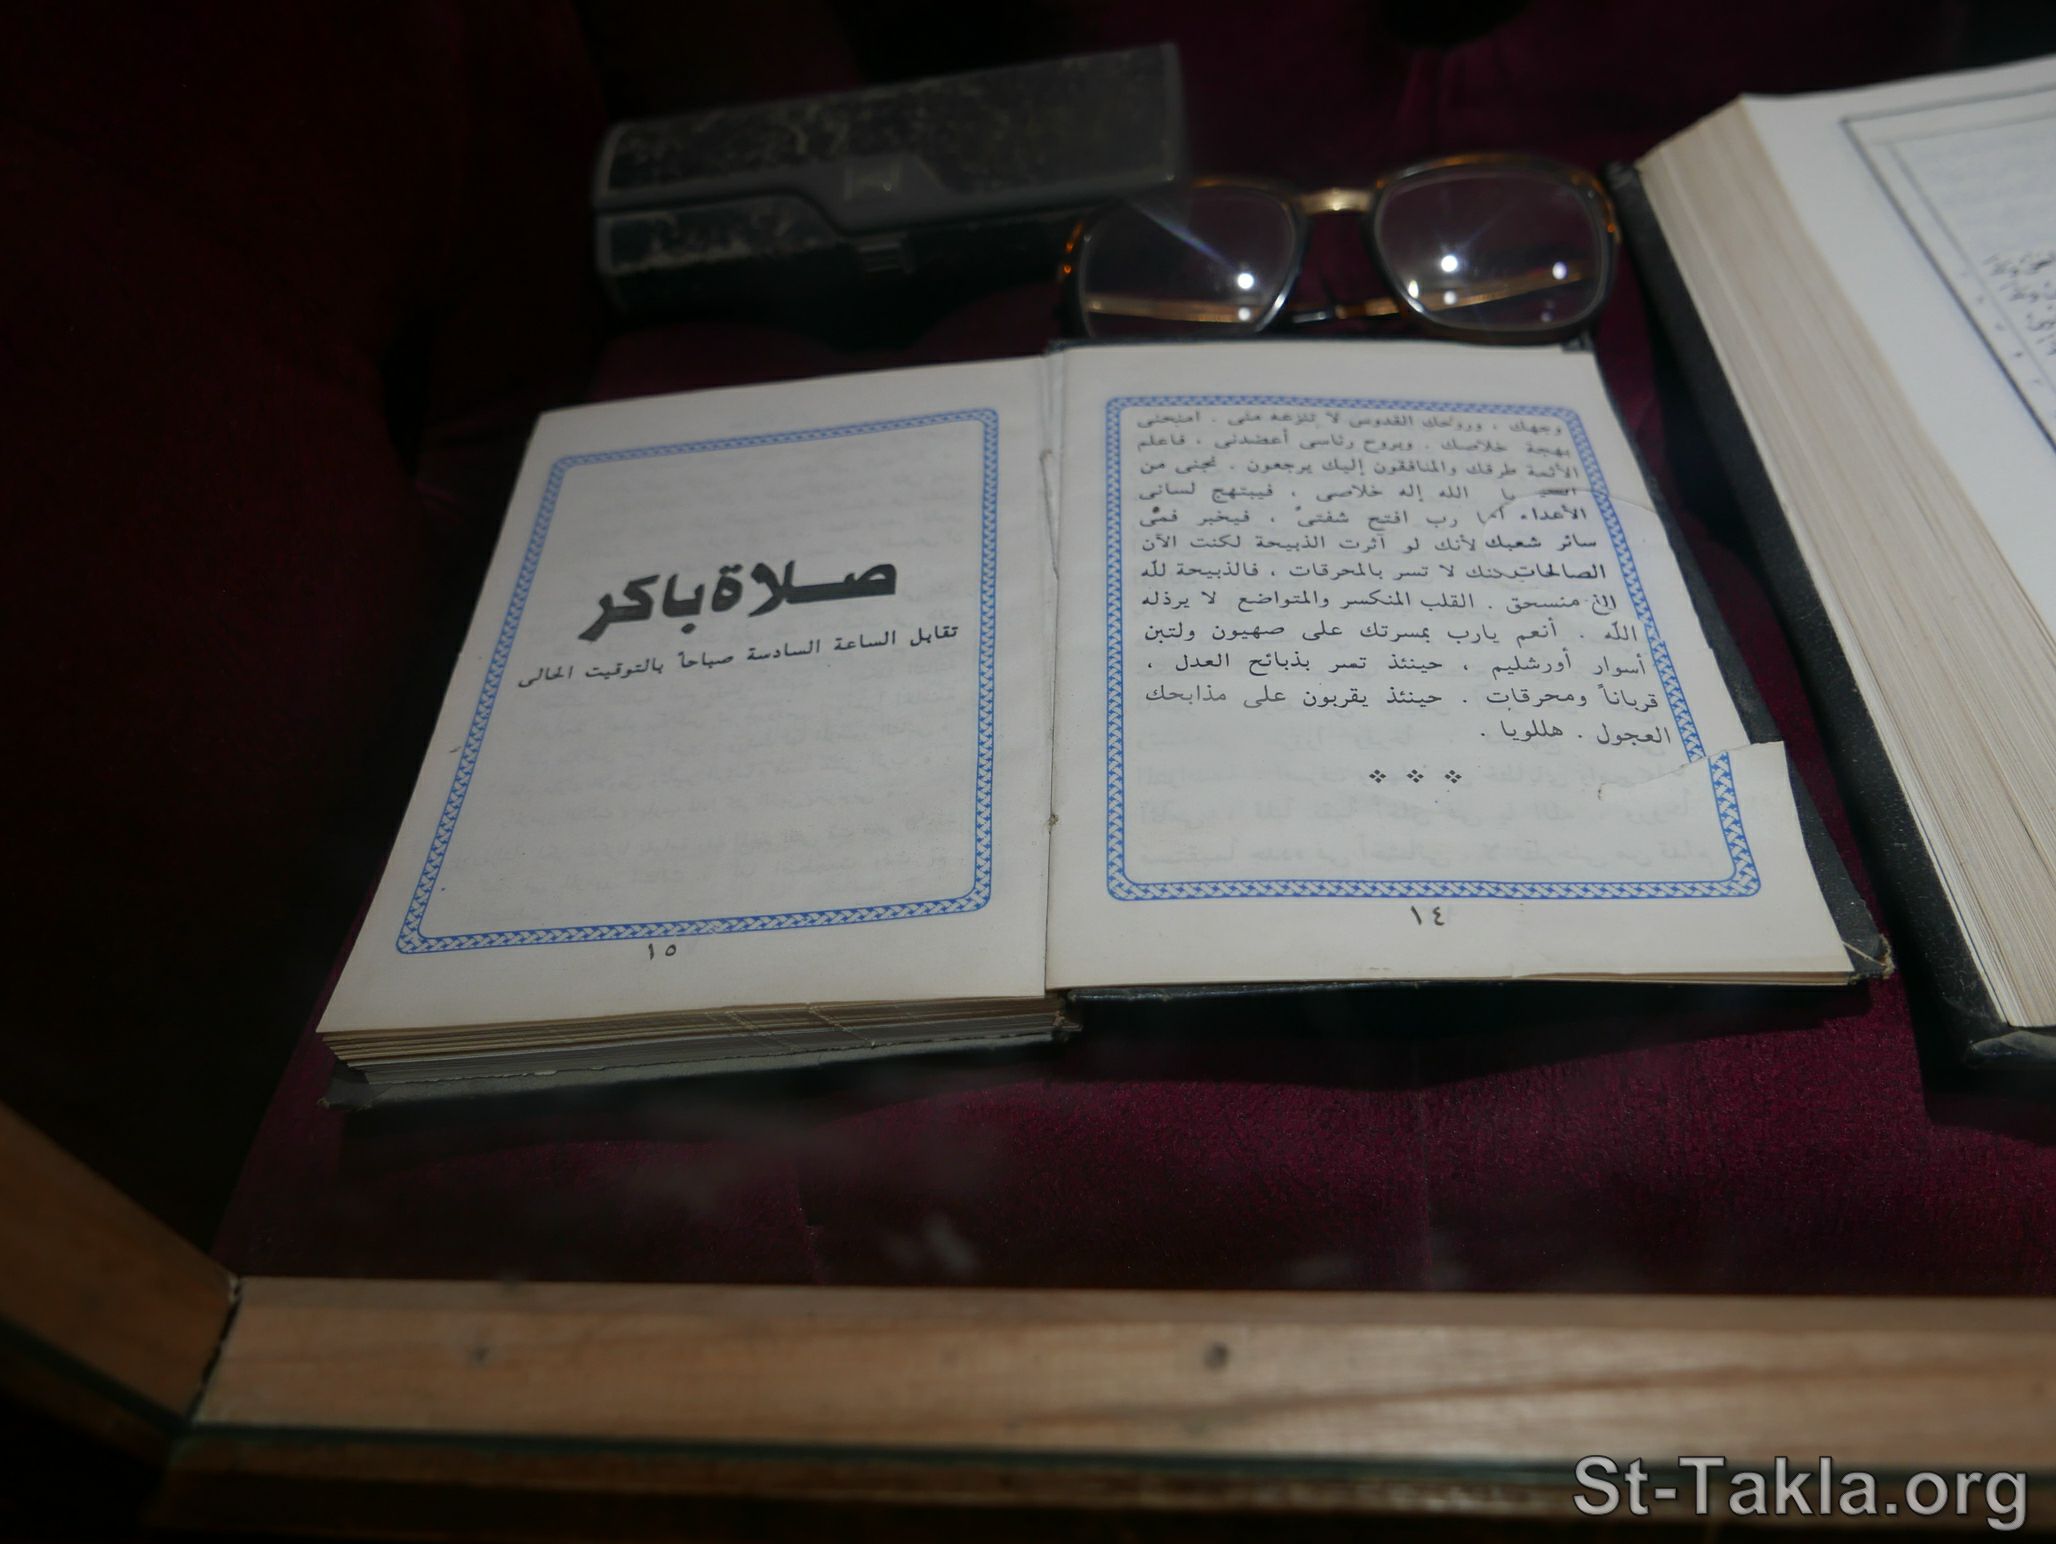 وجهك ، وروحك القدوس لا تنزعه منى . امنحنى
بهجة خلاصك . وبروح رئاسى أعضدنى ، فاعلم
الأثمة طرقك والمنافقون إليك يرجعون . نجنى من
يا الله إله خلاصى ، فيبتهج لسانى
الأعداء رب افتح شفتىّ ، فيخبر فمى
سائر شعبك لأنك لو آثرت الذبيحة لكنت الآن
الصالحات لا تسر بالمحرقات ، فالذبيحة لله
منسحق . القلب المنكسر والمتواضع لا يرذله
الله . أنعم يارب بمسرتك على صهيون ولتبن
أسوار أورشليم ، حينئذ تسر بذبائح العدل ،
قرباناً ومحرقات . حينئذ يقربون على مذابحك
العجول . هللويا .
١٤
صلاة باكر
تقابل الساعة السادسة صباحاً بالتوقيت الحالى
١٥
St-Takla.org